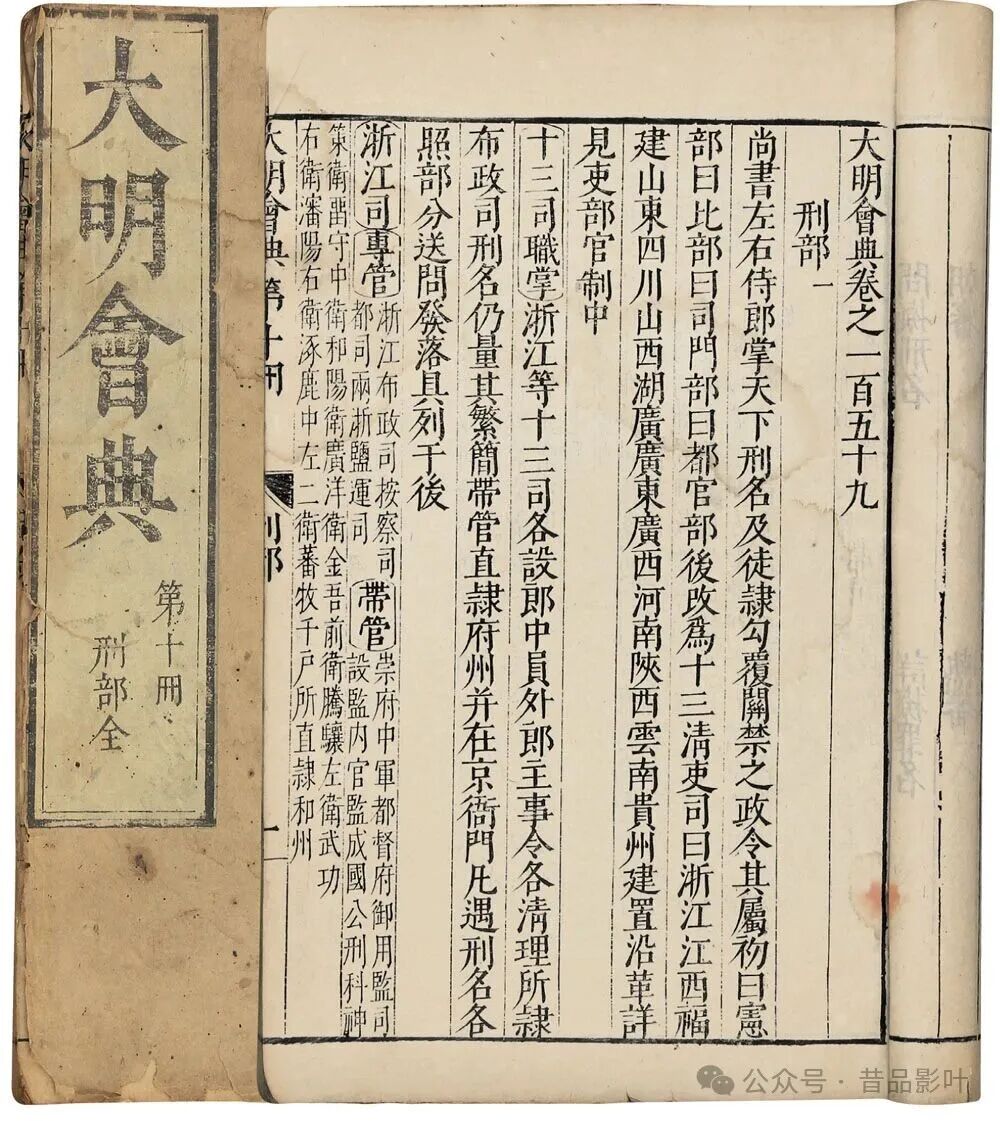 大明會典
第十冊
刑部全
大明會典卷之一百五十九
刑部一
尚書左右侍郎掌天下刑名及徒隷勾覆關禁之政令其屬初曰憲
部曰比部曰司門部曰都官部後改爲十三清吏司曰浙江江西福
建山東四川山西湖廣廣東廣西河南陜西雲南貴州建置沿革詳
見吏部官制中
十三司職掌浙江等十三司各設郎中員外郎主事令各清理所隷
布政司刑名仍量其繁簡帶管直隷府州并在京衙門凡遇刑名各
照部分送問發落具列于後
浙江司專管浙江布政司按察司
都司兩浙鹽運司
帶管崇府中軍都督府御用監司
設監内官監成國公刑科神
策衛留守中衛和陽衛廣洋衛金吾前衛騰驤左衛武功
右衛瀋陽右衛涿鹿中左二衛蕃牧千戶所直隷和州
大明會典第十冊
刑部
一
公众号·昔品影叶